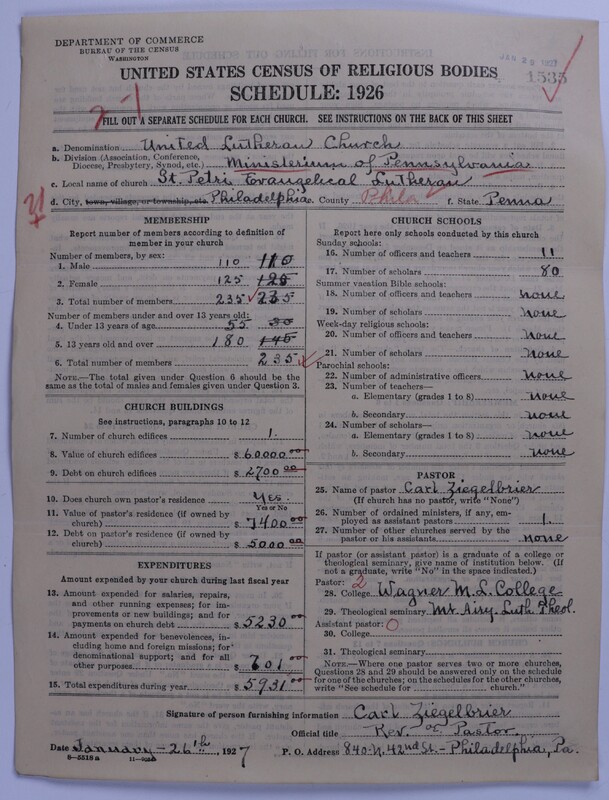 DEPARTMENT OF COMMERCE
BUREAU OF THE CENSUS
WASHINGTON
JAN 29 1927
1535
UNITED STATES CENSUS OF RELIGIOUS BODIES
SCHEDULE: 1926
2-1
FILL OUT A SEPARATE SCHEDULE FOR EACH CHURCH. SEE INSTRUCTIONS ON THE BACK OF THIS SHEET
a. Denomination United Lutheran Church
b. Division (Association, Conference, Diocese, Presbytery, Synod, etc.) Ministerium of Pennsylvania
c. Local name of church St. Petri Evangelical Lutheran
d. City, town, village, or township, etc. Philadelphia e. County Phila f. State Penna
MEMBERSHIP
Report number of members according to definition of member in your church
Number of members, by sex:
1. Male 110 110
2. Female 125 125
3. Total number of members 235 235
Number of members under and over 13 years old:
4. Under 13 years of age 55
5. 13 years old and over 180 145
6. Total number of members 235
NOTE.—The total given under Question 6 should be the same as the total of males and females given under Question 3.
CHURCH BUILDINGS
See instructions, paragraphs 10 to 12
7. Number of church edifices 1.
8. Value of church edifices $ 60000 00
9. Debt on church edifices $ 2700 00
10. Does church own pastor's residence Yes.
Yes or No
11. Value of pastor's residence (if owned by church) $ 7400 00
12. Debt on pastor's residence (if owned by church) $ 5000 00
EXPENDITURES
Amount expended by your church during last fiscal year
13. Amount expended for salaries, repairs, and other running expenses; for improvements or new buildings; and for payments on church debt $ 5230 00
14. Amount expended for benevolences, including home and foreign missions; for denominational support; and for all other purposes $ 701 00
15. Total expenditures during year $ 5931 00
CHURCH SCHOOLS
Report here only schools conducted by this church
Sunday schools:
16. Number of officers and teachers 11
17. Number of scholars 80
Summer vacation Bible schools:
18. Number of officers and teachers none
19. Number of scholars none
Week-day religious schools:
20. Number of officers and teachers none
21. Number of scholars none
Parochial schools:
22. Number of administrative officers none
23. Number of teachers—
a. Elementary (grades 1 to 8) none
b. Secondary none
24. Number of scholars—
a. Elementary (grades 1 to 8) none
b. Secondary none
PASTOR
25. Name of pastor Carl Ziegelbrier
(If church has no pastor, write "None")
26. Number of ordained ministers, if any, employed as assistant pastors 1.
27. Number of other churches served by the pastor or his assistants none
If pastor (or assistant pastor) is a graduate of a college or theological seminary, give name of institution below. (If not a graduate, write "No" in the space indicated.)
Pastor: 2
28. College Wagner M. L. College
29. Theological seminary Mt. Airy. Luth Theol.
Assistant pastor: 0
30. College
31. Theological seminary
NOTE.—Where one pastor serves two or more churches, Questions 28 and 29 should be answered only on the schedule for one of the churches; on the schedules for the other churches, write "See schedule for church."
Signature of person furnishing information Carl Ziegelbrier
Official title Rev. or Pastor.
Date January-26th, 1927 P. O. Address 840-N. 42nd St.-Philadelphia, Pa.
8—5518a